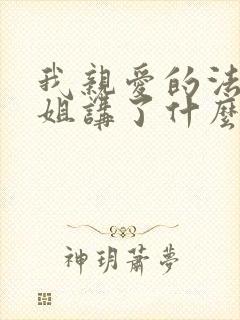 我親愛的法
姐講了什麼
神玥蕭夢